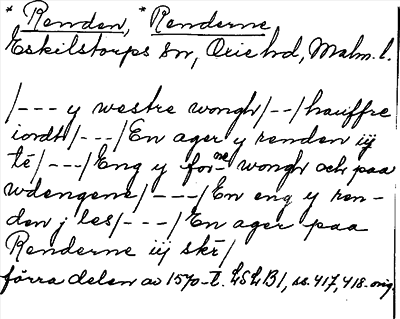 * Renden, * Renderne
Eskilstorps sn, Oxie hd, Malm. l.
/--- y westre wongh/--/hauffre
iordt/---/En ager y renden iij
té/---/Eng y for:ne wongh och paa
wdengene/---/En eng y ren-
den j les/---/En ager paa
Renderne iij skr/
förra delen av 1570-t. LSLB1, ss. 417, 418. orig.